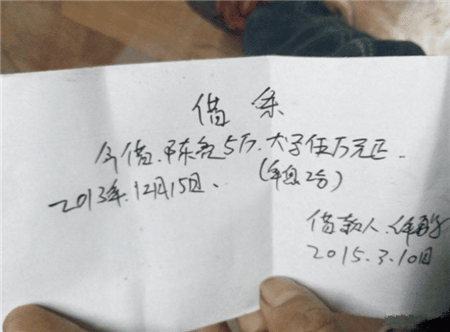 借条
今借.陈亮5万.大予伍万元正.
2013年.12月15日、(年息2分)
借款人.
2015.3.10日